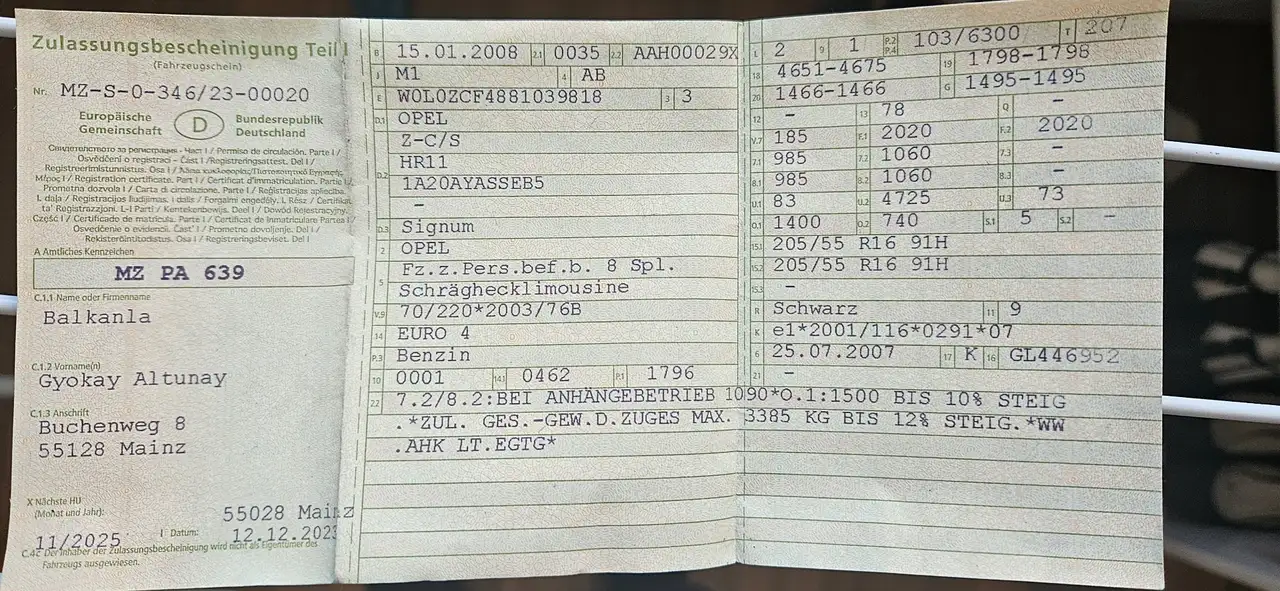 Zulassungsbescheinigung Teil I
(Fahrzeugschein)
Nr. MZ-S-0-346/23-00020
Europäische Gemeinschaft
D
Bundesrepublik Deutschland
Свидетелство за регистрация - Част I / Permiso de circulación. Parte I /
Osvědčení o registraci - Část I / Registreringsattest. Del I /
Registreerimistunnistus. Osa I / Άδεια κυκλοφορίας/Πιστοποιητικό Εγγραφής
Μέρος I / Registration certificate. Part I / Certificat d'immatriculation. Partie I /
Prometna dozvola I / Carta di circolazione. Parte I / Reģistrācijas apliecība.
I. daļa / Registracijos liudijimas. I dalis / Forgalmi engedély. I. Rész / Ċertifikat
ta' Reġistrazzjoni. L-I Parti / Kentekenbewijs. Deel I / Dowód Rejestracyjny.
Część I / Certificado de matrícula. Parte I / Certificat de înmatriculare Partea I /
Osvedčenie o evidencii. Časť I / Prometno dovoljenje. Del I /
Rekisteröintitodistus. Osa I / Registreringsbeviset. Del I
A Amtliches Kennzeichen
MZ PA 639
C.1.1 Name oder Firmenname
Balkanla
C.1.2 Vorname(n)
Gyokay Altunay
C.1.3 Anschrift
Buchenweg 8
55128 Mainz
X Nächste HU
(Monat und Jahr):
55028 Mainz
11/2025 I Datum: 12.12.2023
C.4c Der Inhaber der Zulassungsbescheinigung wird nicht als Eigentümer des
Fahrzeugs ausgewiesen.
B 15.01.2008 2.1 0035 2.2 AAH00029X
J M1 4 AB
E W0L0ZCF4881039818 3 3
D.1 OPEL
Z-C/S
D.2 HR11
1A20AYASSEB5
-
D.3 Signum
2 OPEL
5 Fz.z.Pers.bef.b. 8 Spl.
Schräghecklimousine
V.9 70/220*2003/76B
14 EURO 4
P.3 Benzin
10 0001 14.1 0462 P.1 1796
22 7.2/8.2:BEI ANHÄNGEBETRIEB 1090*O.1:1500 BIS 10% STEIG
.*ZUL. GES.-GEW.D.ZUGES MAX. 3385 KG BIS 12% STEIG.*WW
.AHK LT.EGTG*
L 2 9 1 P.2 P.4 103/6300 T 207
18 4651-4675 19 1798-1798
20 1466-1466 G 1495-1495
12 - 13 78 Q -
V.7 185 F.1 2020 F.2 2020
7.1 985 7.2 1060 7.3 -
8.1 985 8.2 1060 8.3 -
U.1 83 U.2 4725 U.3 73
O.1 1400 O.2 740 S.1 5 S.2 -
15.1 205/55 R16 91H
15.2 205/55 R16 91H
15.3 -
R Schwarz 11 9
K e1*2001/116*0291*07
6 25.07.2007 17 K 16 GL446952
21 -